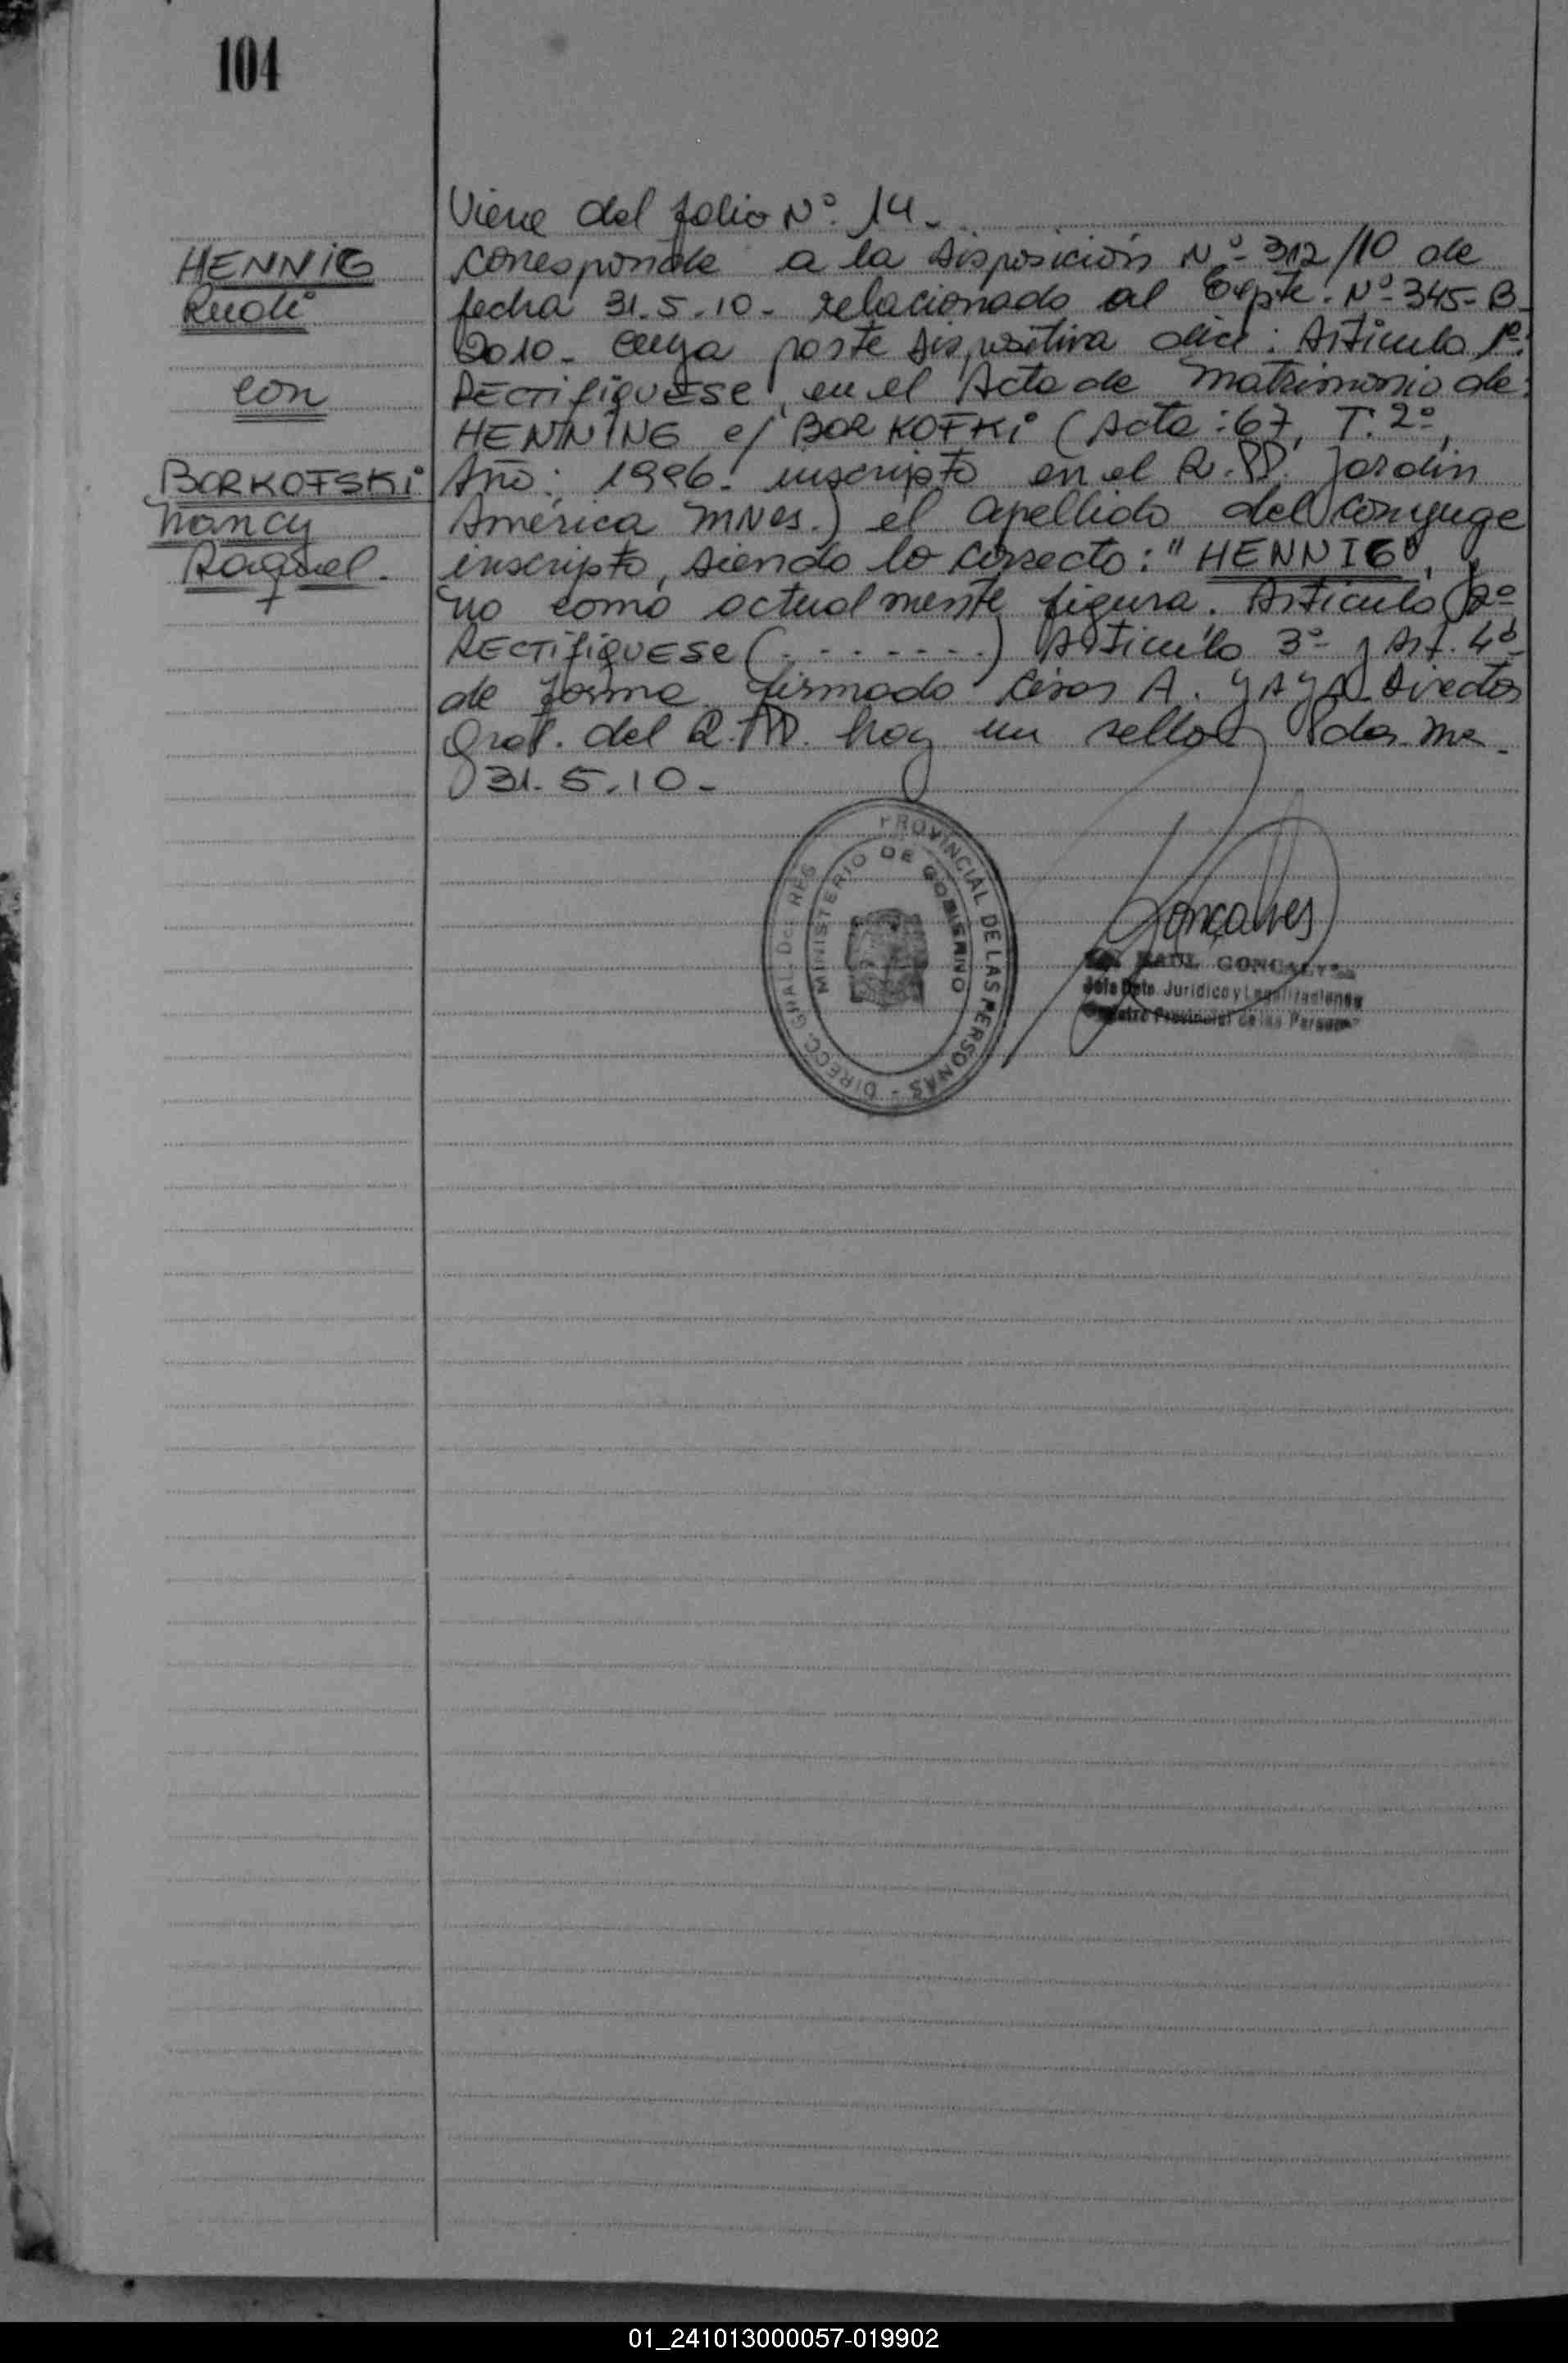 104
HENNIG
Rudi
con
BORKOFSKI
Nancy
Raquel.
Viene del folio Nº. 14.
Corresponde a la Disposición Nº- 312/10 de
fecha 31.5.10- relacionado al Expte. Nº- 345-B-
2010- cuya parte dispositiva dice: Artículo 1º:
RECTIFÍQUESE, en el Acta de Matrimonio de:
HENNING c/ BORKOFKI (Acta: 67, T. 2º,
Año: 1996. inscripto en el R.PP. Jardín
América Mnes.) el apellido del conyuge
inscripto, siendo lo correcto: "HENNIG",
no como actualmente figura. Artículo 2º
RECTIFÍQUESE (.......) Artículo 3º y Art. 4º-
de forma firmado César A. Director
Gral. del R.PP. hay un sello Pdas. Mnes.
31.5.10-
DIRECC. GRAL. DEL REG PROVINCIAL DE LAS PERSONAS -
MINISTERIO DE GOBIERNO
Gonçalves
RAUL GONCALVES
Jefe Dpto. Jurídico y Legalizaciones
Registro Provincial de las Personas
01_241013000057-019902